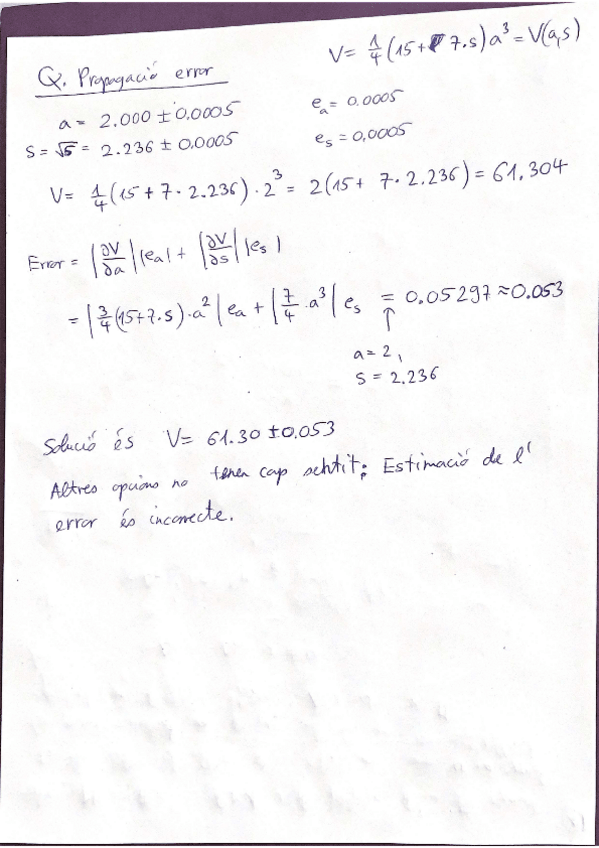 V = 1/4 (15 + 7.s) a³ = V(a,s)
Q. Propagació error
a = 2.000 ± 0.0005
e_a = 0.0005
s = √5 = 2.236 ± 0.0005
e_s = 0,0005
V = 1/4 (15 + 7 · 2.236) · 2³ = 2(15 + 7 · 2.236) = 61,304
Error = |∂V/∂a| |e_a| + |∂V/∂s| |e_s|
= |3/4 (15+7.s) · a²| e_a + |7/4 · a³| e_s = 0.05297 ≈ 0.053
↑
a = 2,
s = 2.236
Solució és V = 61.30 ± 0.053
Altres opcions no tenen cap sentit; Estimació de l'
error és incorrecte.